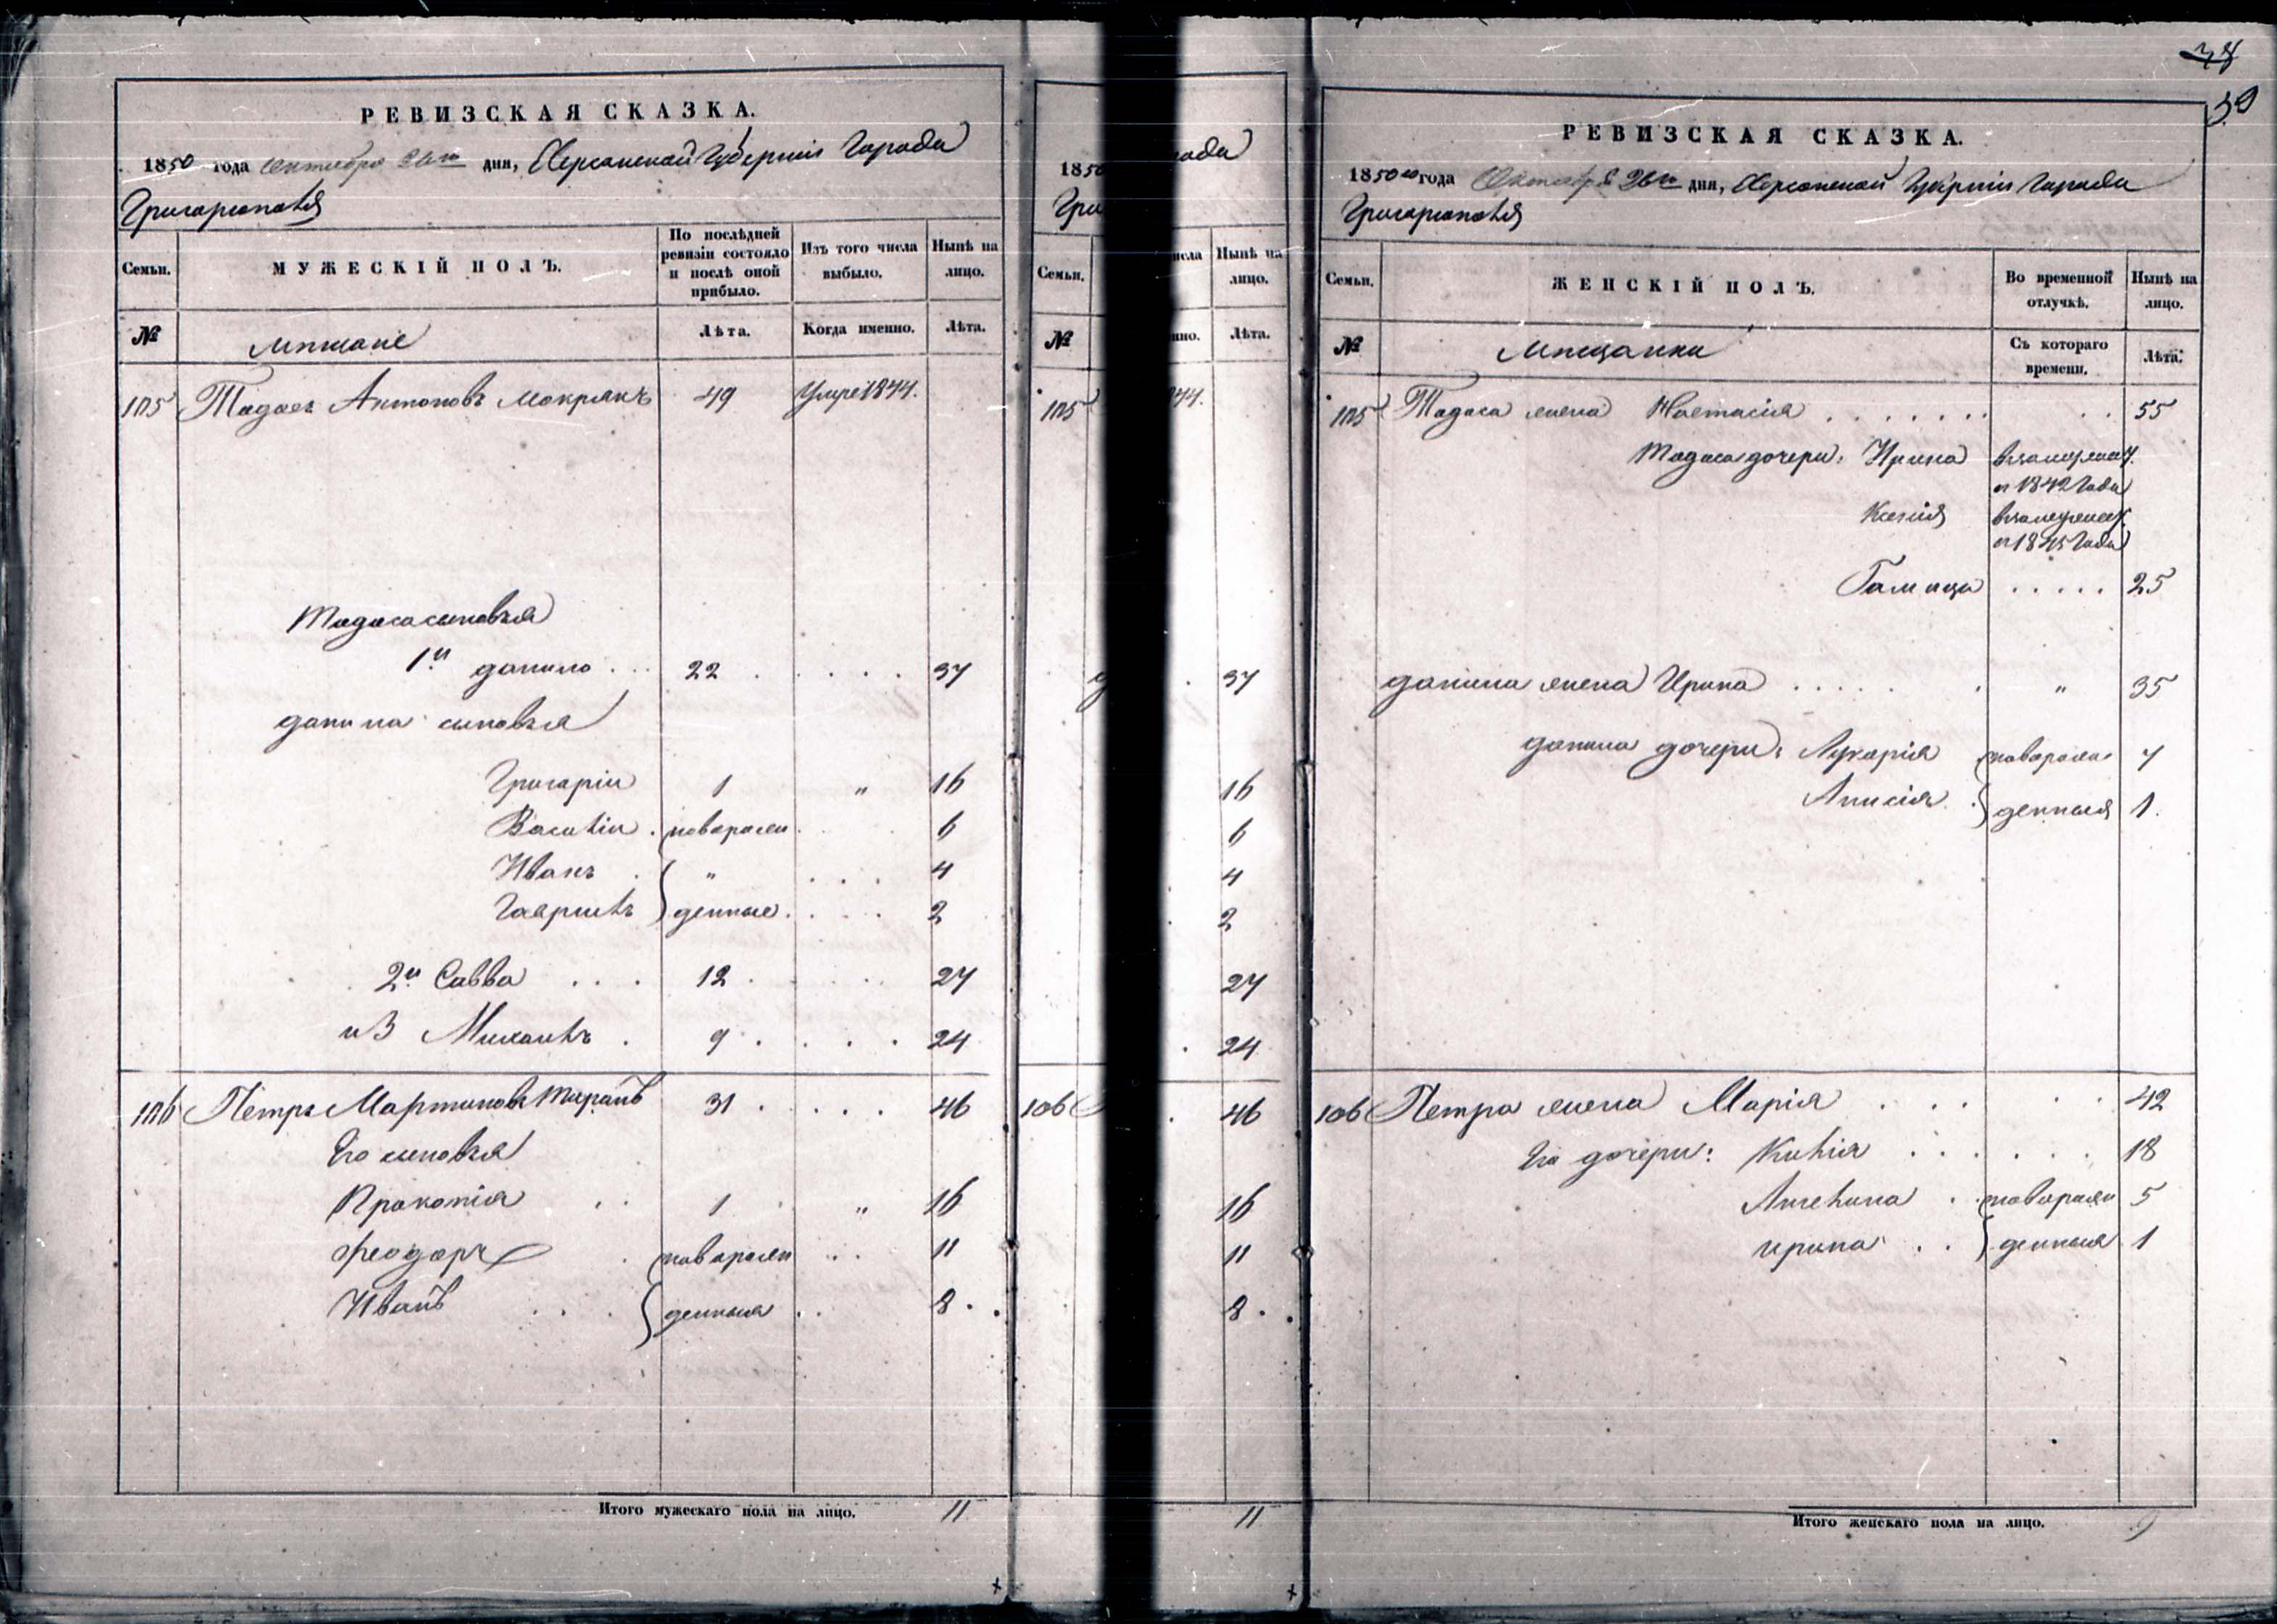 РЕВИЗСКАЯ СКАЗКА.
1850 года Октября 26го дня, Херсонской Губернии Города
Григориополя
Семьи.
МУЖЕСКІЙ ПОЛЪ.
По послѣдней ревизіи состояло и послѣ оной прибыло.
Изъ того числа выбыло.
Нынѣ на лицо.
№
мѣщане
Лѣта.
Когда именно.
Лѣта.
105 Тадосъ Антоновъ Мокрякъ 49 Умре 1844.
Тадоса сыновья
1й данило 22 37
данила сыновья
Григорій 1 " 16
Василій новорож 6
Иванъ " 4
Гаврилъ денные 2
2й Савва 12 27
и 3 Михаилъ 9 24
106 Петръ Мартиновъ 31 46
Его сыновья
Прокопія 1 " 16
Феодоръ новорож 11
Иванъ денныя 8
Итого мужескаго пола на лицо. 11
1850
Гри
Семьи.
№
105
106
ода
исла
Нынѣ на лицо.
нно.
Лѣта.
844.
37
16
6
4
2
27
24
46
16
11
8
11
38
39
РЕВИЗСКАЯ СКАЗКА.
1850го года Октября 26го дня, Херсонской Губерніи Города
Григориополя
Семьи.
ЖЕНСКІЙ ПОЛЪ.
Во временной отлучкѣ.
Нынѣ на лицо.
№
мѣщанки
Съ котораго времени.
Лѣта.
105 Тадоса жена Настасія 55
Тадоса дочери: Ирина взамужест.
съ 1842 Года
Ксенія взамужест.
съ 1845 Года
25
данила жена Ирина " 35
данила дочери: Лукарія новорож 7
Анисія денныя 1
106 Петра жена Марія 42
Его дочери: 18
Ангелина новорож 5
ирина денныя 1
Итого женскаго пола на лицо. 9